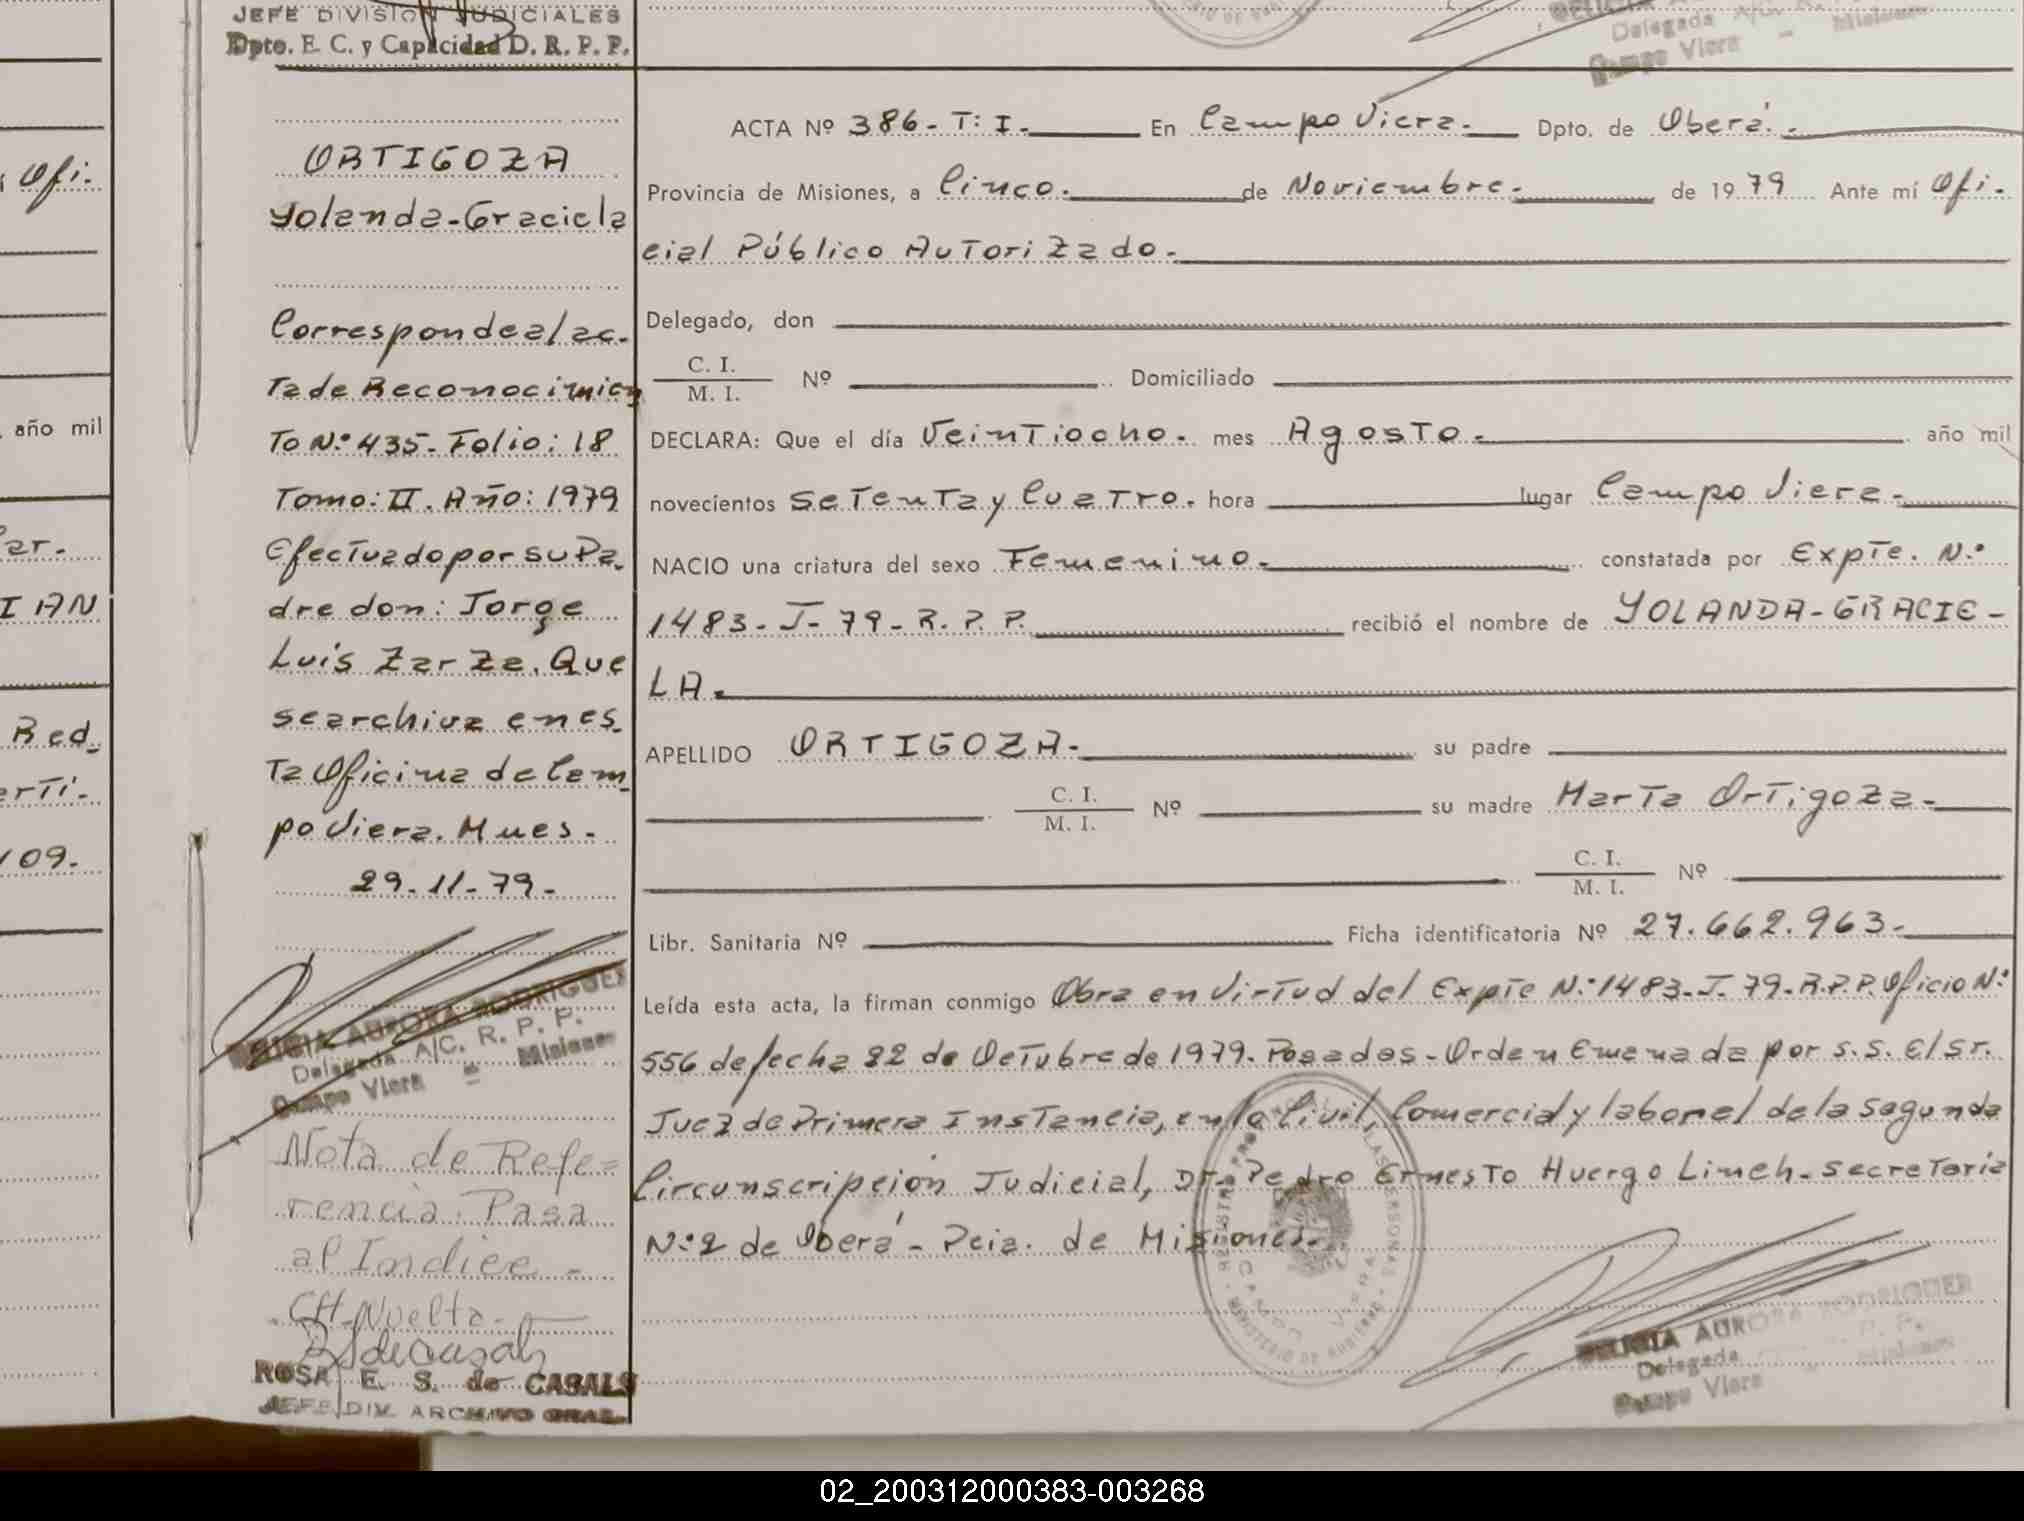 JEFE DIVISION JUDICIALES
Dpto. E. C. y Capacidad D. R. P. P.
Delegada A/C. R.
Campo Viera - Misiones
Ofi.
año mil
ar.
IAN
Red.
erti-
109.
ORTIGOZA
Yolanda-Graciela
Corresponde al ac-
ta de Reconocimien
to N° 435- Folio: 18
Tomo: II. Año: 1979
Efectuado por su Pa-
dre don: Jorge
Luis Zarza. Que
se archiva en es-
ta Oficina de Cam
po Viera. Mues-
29-11-79-
FELICIA AURORA RODRIGUEZ
Delegada A/C. R. P. P.
Campo Viera - Misiones
Nota de Refe=
rencia: Pasa
al Indice -
CH. Vuelta-
ROSA E. S. de CASALS
JEFE DIV. ARCHIVO GRAL.
ACTA Nº 386- T: I. En Campo Viera- Dpto. de Oberá.-
Provincia de Misiones, a Cinco. de Noviembre- de 19 79 Ante mí Ofi-
cial Público Autorizado-
Delegado, don
C. I.
M. I. Nº Domiciliado
DECLARA: Que el día Veintiocho- mes Agosto- año mil
novecientos Setenta y Cuatro. hora lugar Campo Viera-
NACIO una criatura del sexo Femenino- constatada por Expte. N°
1483- J- 79- R. P. P. recibió el nombre de YOLANDA-GRACIE-
LA.
APELLIDO ORTIGOZA- su padre
C. I.
M. I. Nº su madre Marta Ortigoza-
C. I.
M. I. Nº
Libr. Sanitaria Nº Ficha identificatoria Nº 27.662.963-
Leída esta acta, la firman conmigo Obra en Virtud del Expte N° 1483-J- 79-R.P.P. Oficio N°
556 de fecha 22 de Octubre de 1979- Posadas- Orden Emanada por s.s. El Sr.
Juez de Primera Instancia, en lo Civil, Comercial y laboral de la Segunda
Circunscripción Judicial, Dr- Pedro Ernesto Huergo Linch- Secretaria
N° 2 de Oberá- Pcia. de Misiones.
FELICIA AURORA RODRIGUEZ
Delegada P. P.
Campo Viera Misiones
02_200312000383-003268